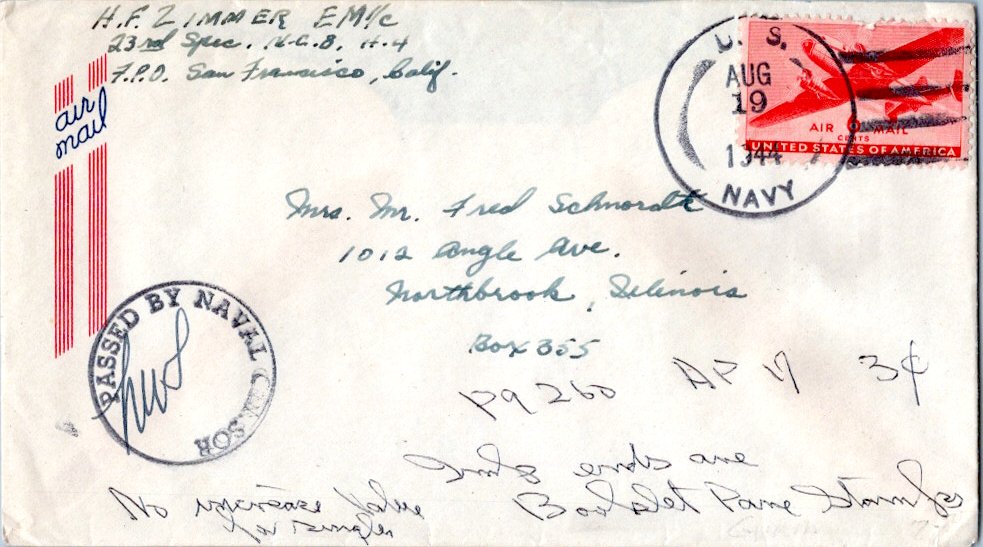 H.F. ZIMMER EM1/c
23rd Spec. N.C.B. H-4
F.P.O. San Francisco, Calif.
air
mail
U. S.
AUG
19
1944
NAVY
AIR 6 MAIL
CENTS
UNITED STATES OF AMERICA
Mrs. Mr. Fred Schnordt
1012 Angle Ave.
Northbrook, Illinois
Box 355
PASSED BY NAVAL CENSOR
pg 260 AP 17 3¢
ends are
Booklet Pane Stamps
No increase Value
for singles